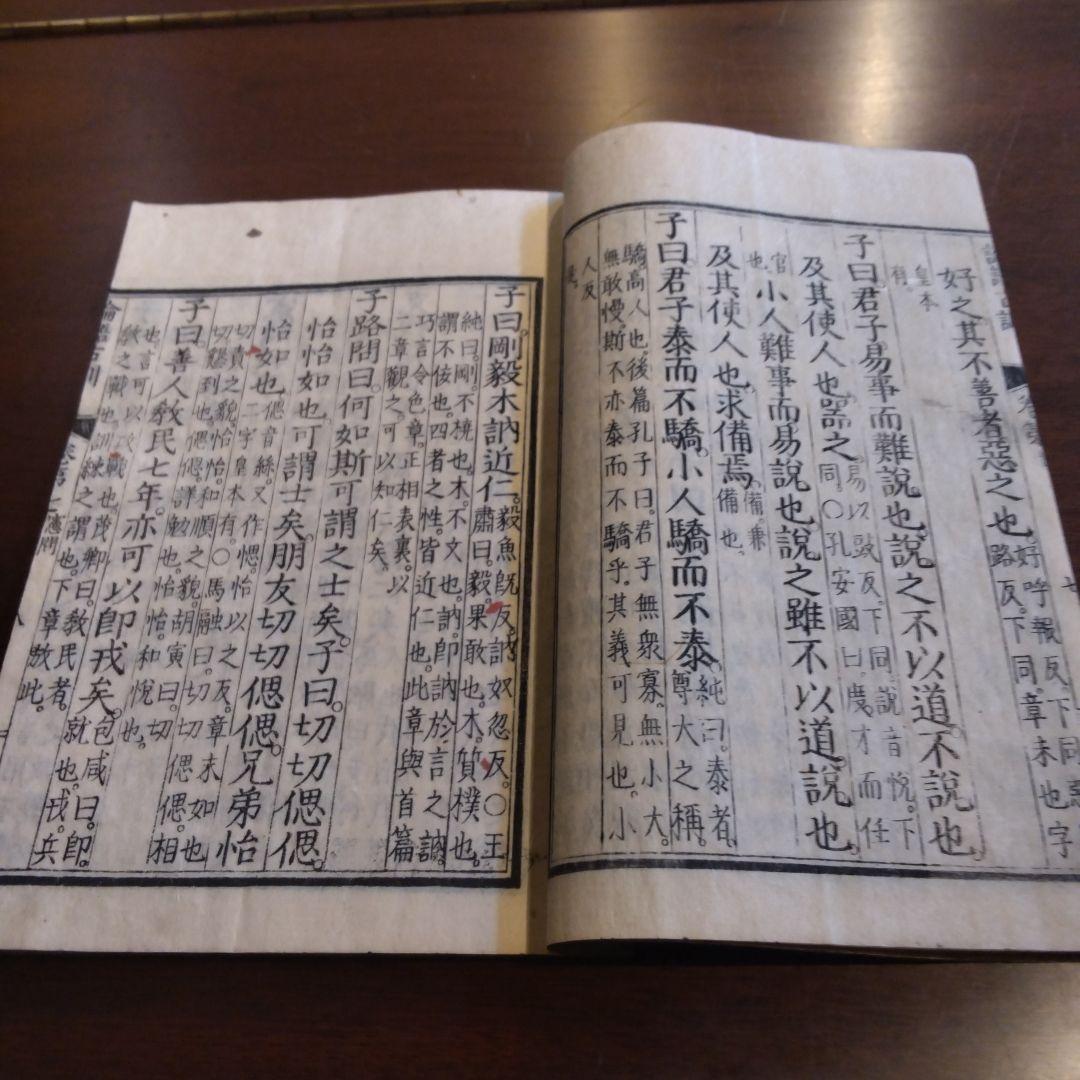 好之其不善者惡之也
好呼報反下同惡
路反下同章末也字
皇本
有
子曰君子易事而難說也說之不以道不說也
易以豉反下同說音悅下
同○孔安國曰度才而任
及其使人也器之
官
也
小人難事而易說也說之雖不以道說也
及其使人也求備焉
備兼
備也
子曰君子泰而不驕小人驕而不泰
純曰泰者
尊大之稱
驕高人也後篇孔子曰君子無衆寡無小大
無敢慢斯不亦泰而不驕乎其義可見也小
人反
是
子曰剛毅木訥近仁
毅魚旣反訥奴忽反○王
肅曰毅果敢也木質樸也
純曰剛不橈也木不文也訥卽訥於言之訥
謂不佞也四者之性皆近仁也此章與首篇
巧言令色章正相表裏以
二章觀之可以知仁矣
子路問曰何如斯可謂之士矣子曰切切偲偲
怡怡如也可謂士矣朋友切切偲偲兄弟怡
怡如也
偲音絲又作愢怡以之反章末如也
二字皇本有○馬融曰切切偲偲相
切責之貌怡怡和順之貌胡寅曰切
切懇到也偲偲詳勉也怡怡和悅也
子曰善人敎民七年亦可以卽戎矣
包咸曰卽
就也戎兵
也言可以攻戰也茂卿曰敎民者
敎之戰也訓練之謂也下章敎此
論語古訓
八